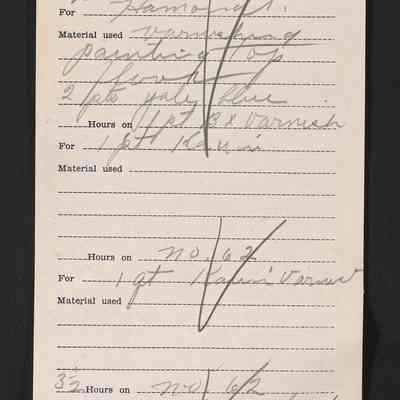 For Hamond.
Material used varnishing
painting top
floor
2 pts yale blue
Hours on 1 pt Bx Varnish
For 1 pt Kauri
Material used
Hours on no. 62
For 1 qt Kauri Varnis
Material used
3½ Hours on no. 62